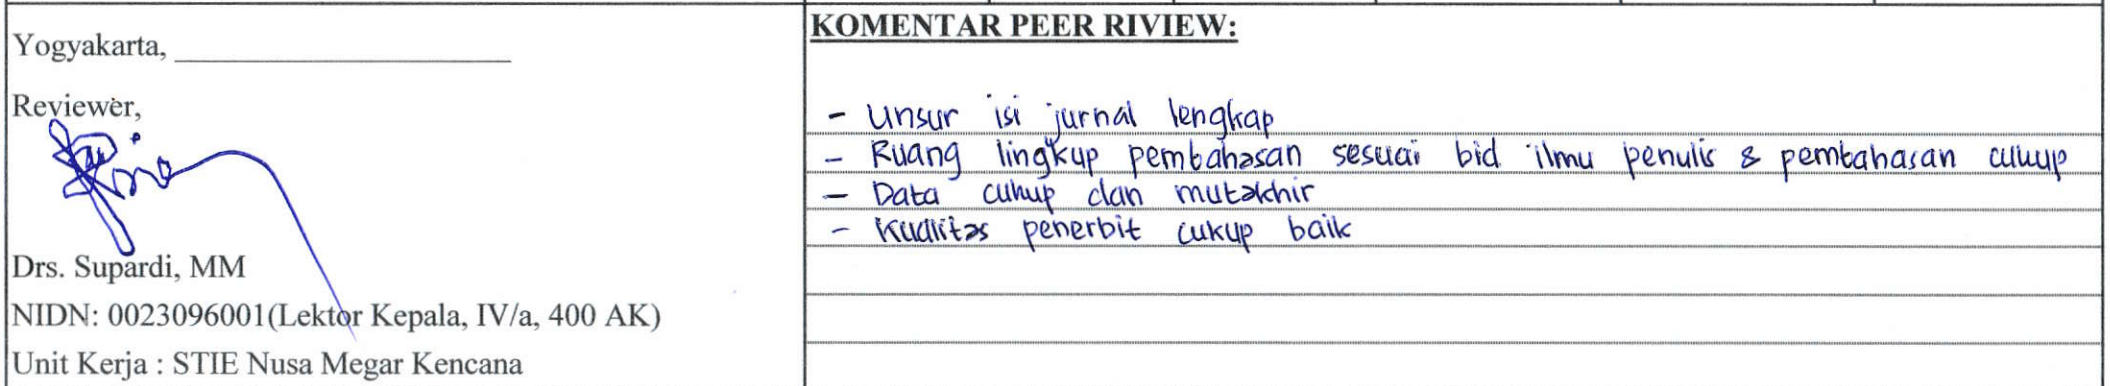 Yogyakarta, ____________________
Reviewer,
Drs. Supardi, MM
NIDN: 0023096001(Lektor Kepala, IV/a, 400 AK)
Unit Kerja : STIE Nusa Megar Kencana
KOMENTAR PEER RIVIEW:
- Unsur isi jurnal lengkap
- Ruang lingkup pembahasan sesuai bid ilmu penulis & pembahasan cukup
- Data cukup dan mutakhir
- Kualitas penerbit cukup baik